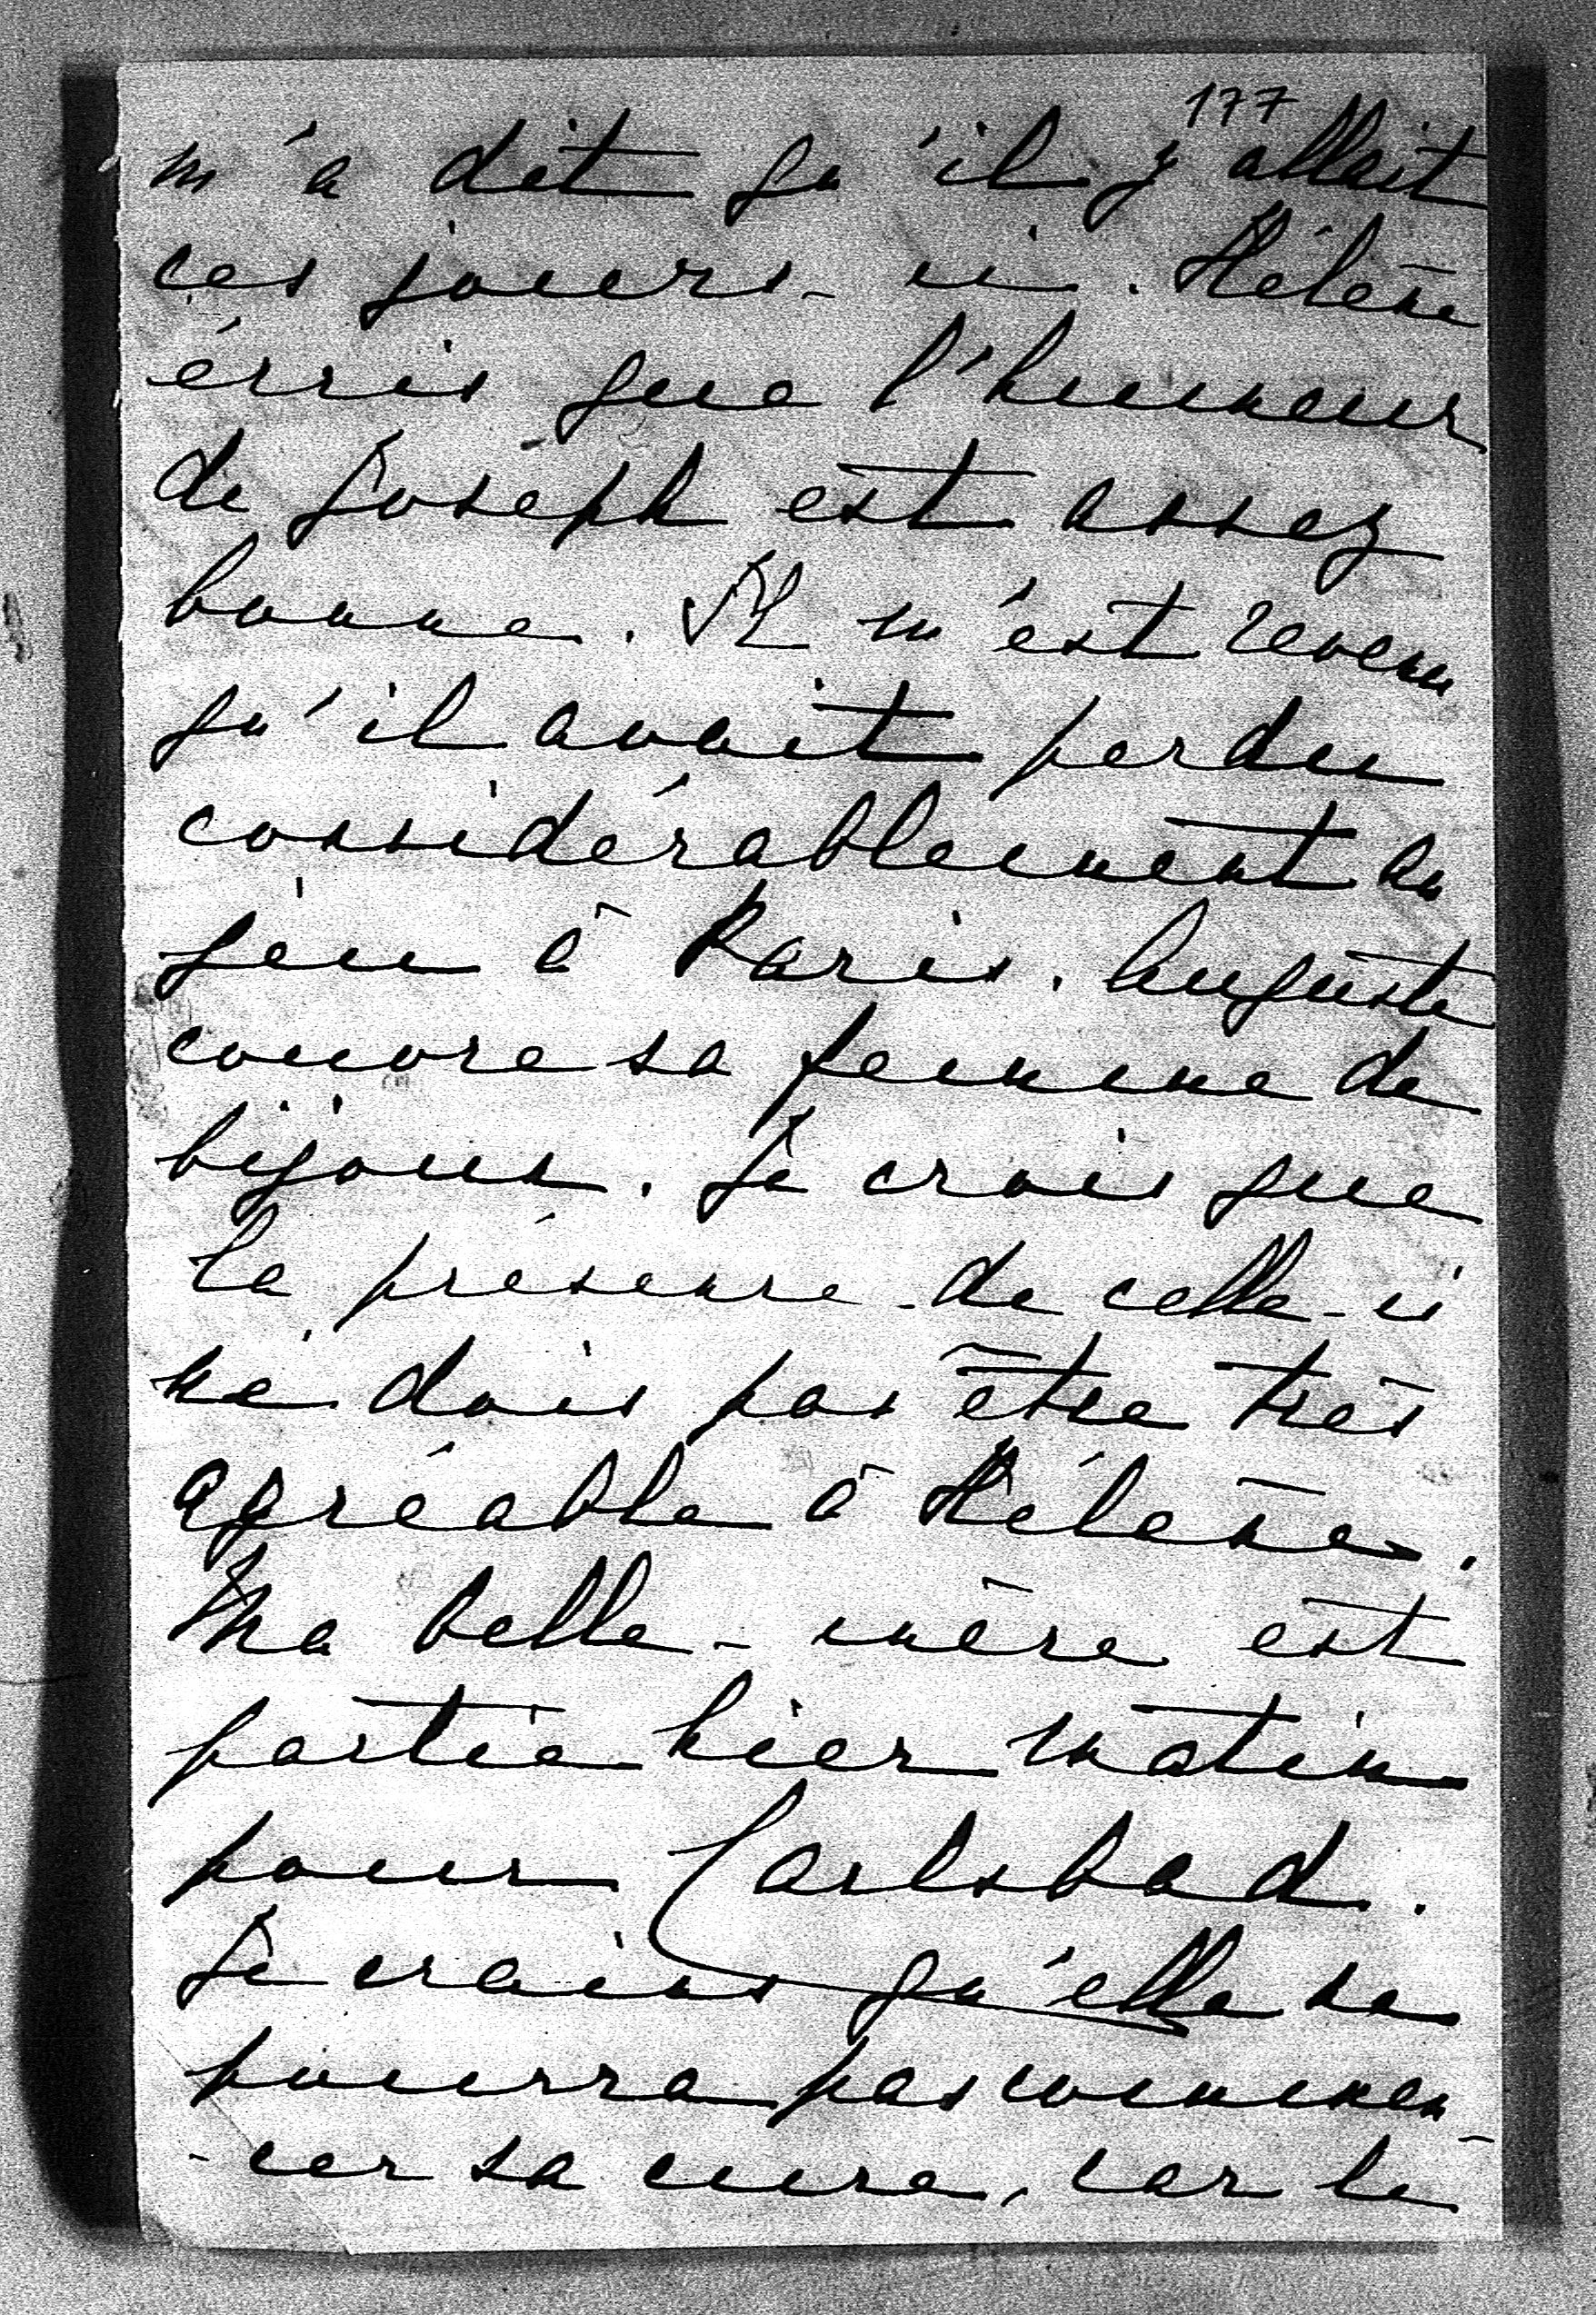 177
m'a dit qu'il y allait
ces jours-ci. Hélène
écris que l'humeur
de Joseph est assez
bonne. Il m'est revenu
qu'il avait perdu
considérablement au
jeu à Paris. Auguste
couvre sa femme de
bijoux. Je crois que
la présence de celle-ci
ne dois pas être très
agréable à Hélène.
Ma belle-mère est
partie hier matin
pour Carlsbad.
Je crains qu'elle ne
pourra pas commen-
-cer sa cure, car le